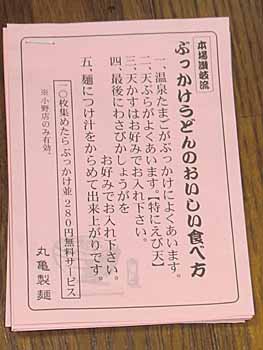 本場讃岐流
ぶっかけうどんのおいしい食べ方
一、温泉たまごがぶっかけによくあいます。
二、天ぷらがよくあいます。【特にえび天】
三、天かすはお好みでお入れ下さい。
四、最後にわさびかしょうがを
お好みでお入れ下さい。
五、麺につけ汁をからめて出来上がりです。
一〇枚集めたら ぶっかけ並 280円無料サービス
※小野店のみ有効.
丸亀製麺